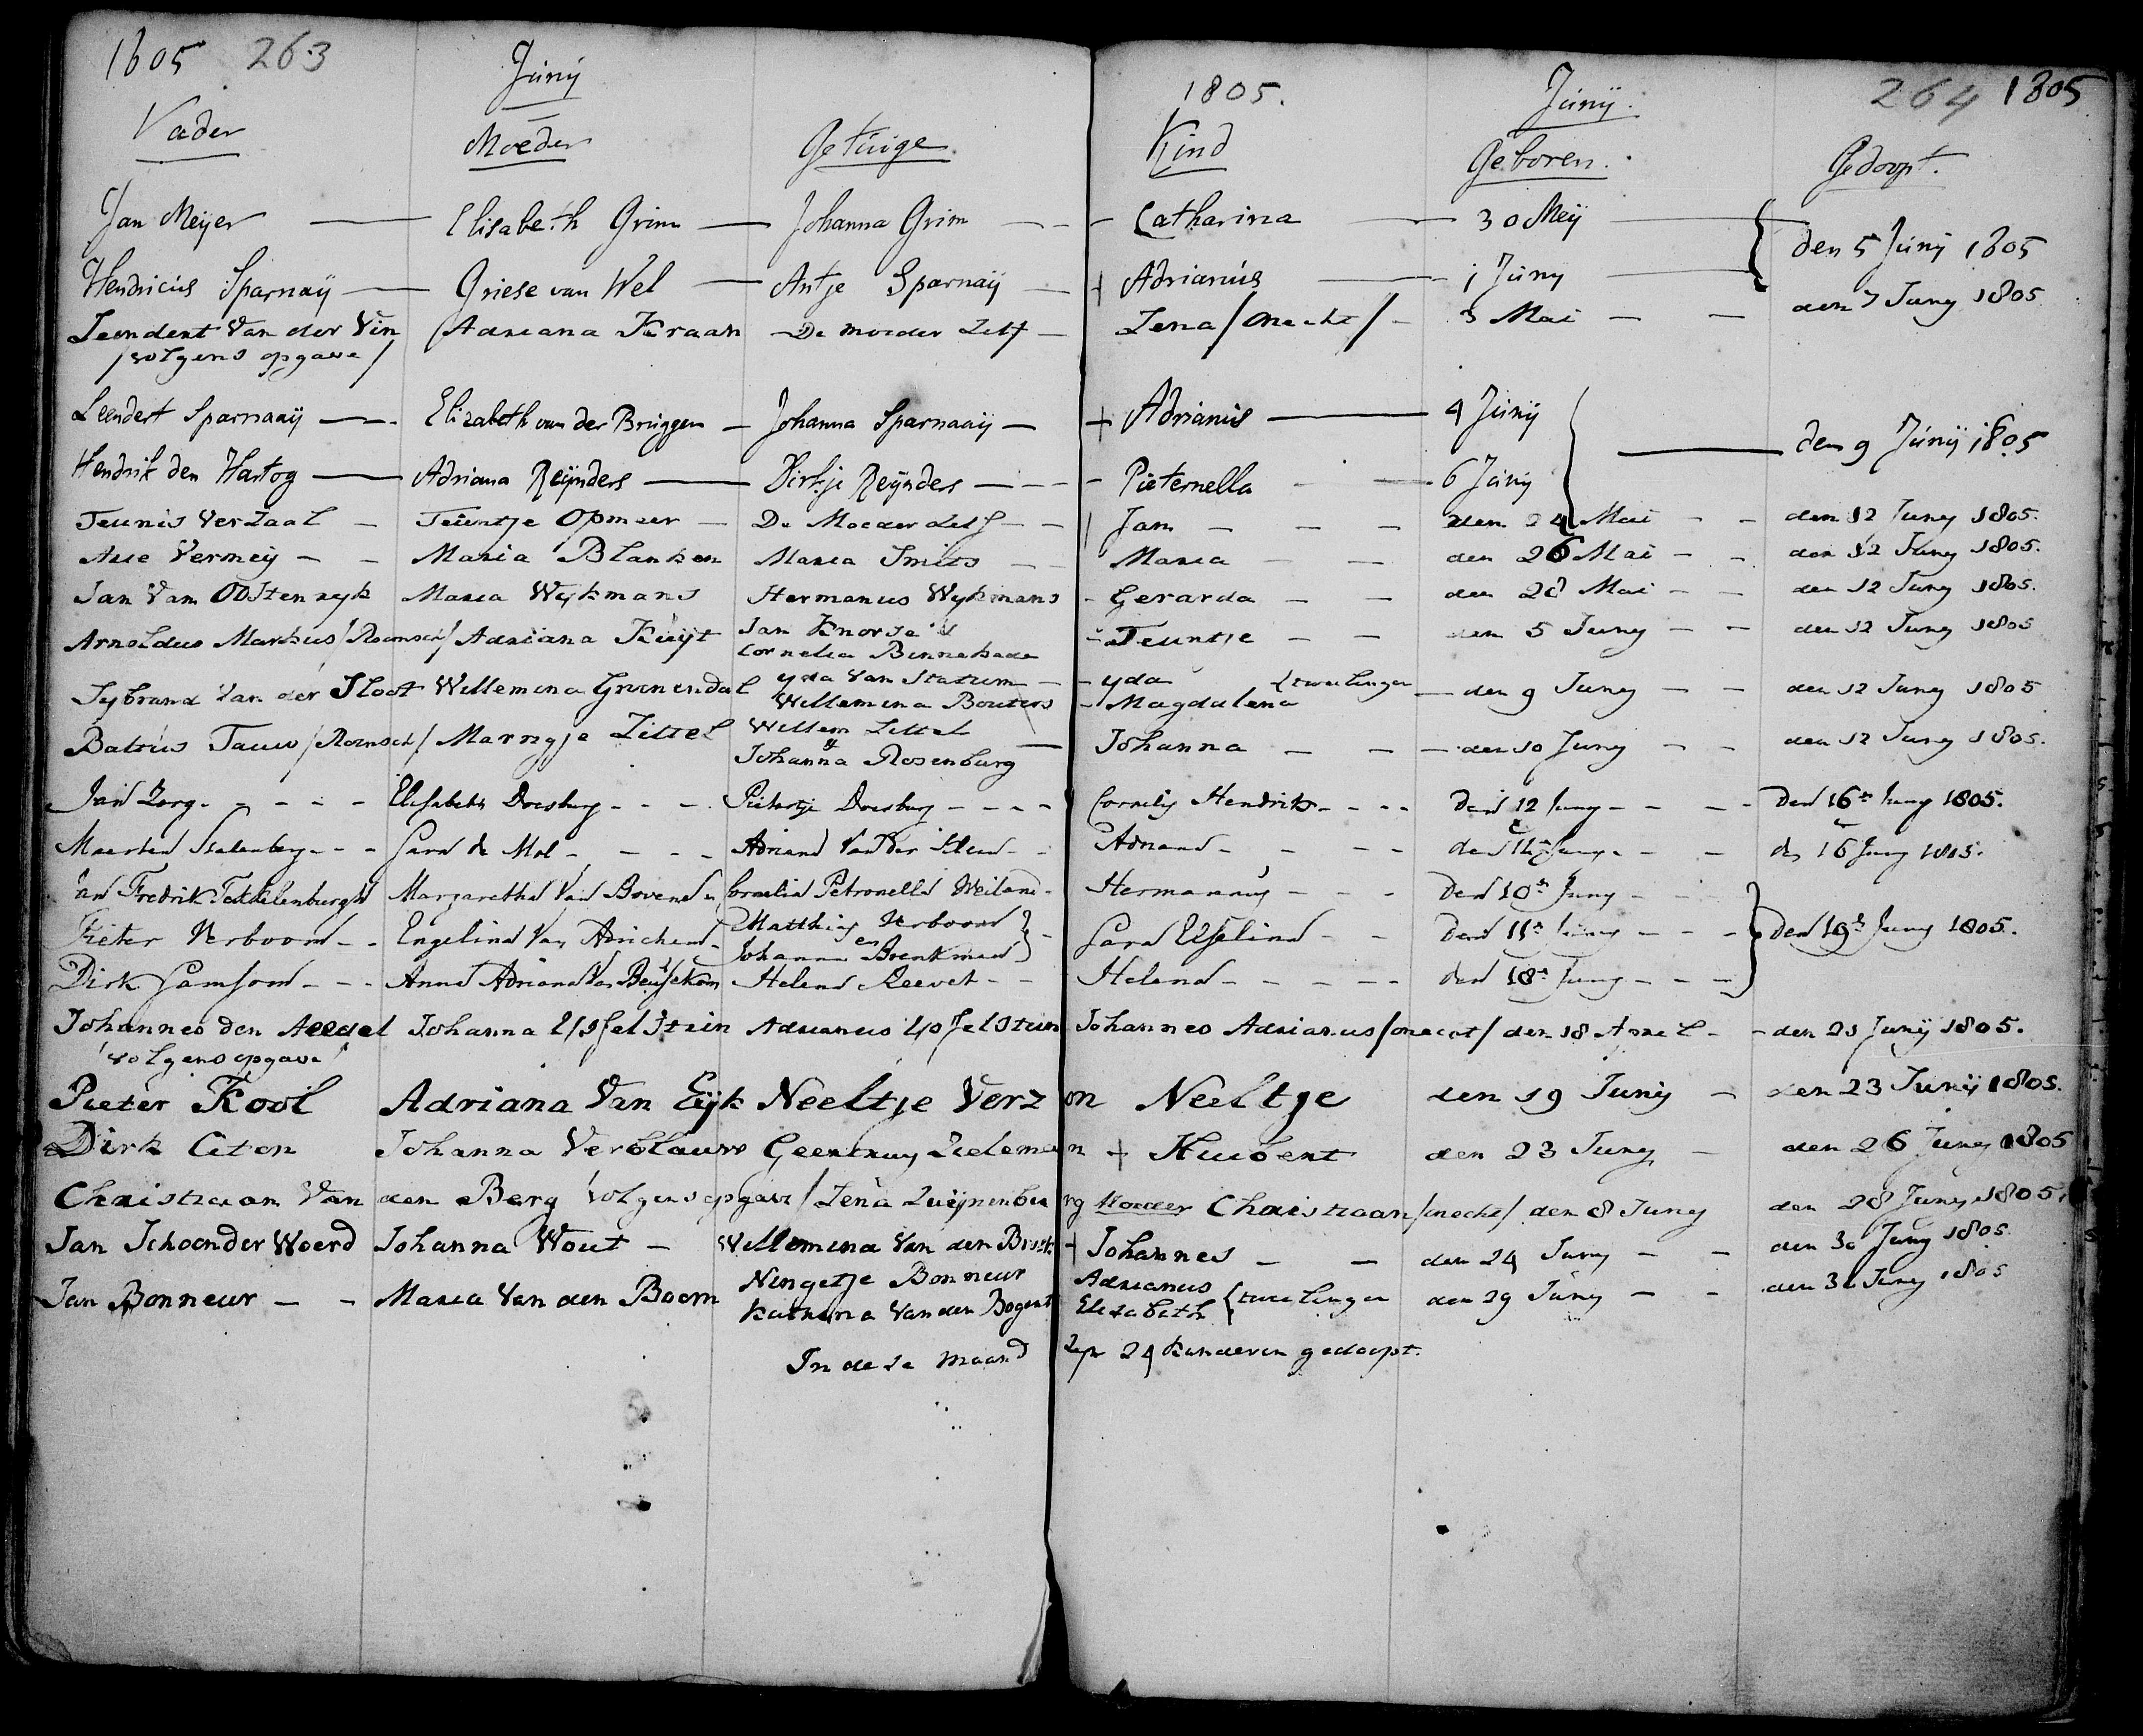 1805 263 Junij 1805. Junij. 264 1805
Vader Moeder Getuige. Kind Geboren. Gedoopt.
Jan Meijer Elisabeth Grim Johanna Grim Catharina 30 Meij
den 5 Junij 1805
Hendricus Sparnaij Griese van Wel Antje Sparnaij + Adrianus 1 Juny
Leendert Van der Vin Adriana Kraan De moeder Zelf Lena /onecht/ 3 Mai den 7 Juny 1805
/volgens opgave/
Leendert Sparnaaij Elizabeth van der Bruggen Johanna Sparnaaij + Adrianus 4 Junij
den 9 Junij 1805
Hendrik den Hartog Adriana Reijnders Dirkje Reijnders Pieternella 6 Junij
Teunis Verzaal Teuntje Opmeer De Moeder Zelf Jan den 24 Mai den 12 Juny 1805.
Arie Vermeij Maria Blanken Maria Smits Maria den 26 Mai den 12 Juny 1805.
Jan Van Oostenryk Maria Wykmans Hermanus Wykmans Gerarda den 28 Mai den 12 Juny 1805.
Arnoldus Markus /Roomsch/ Adriana Kuijt Jan Teuntje den 5 Juny den 12 Juny 1805
Cornelia Bennebroek
Sybrand Van der Sloot Willemina Groenendal Yda Van Statum Yda {tweelingen den 9 Juny den 12 Juny 1805
Willemina Bouters Magdalena
Batrus Tauw /Roomsch/ Marngje Zittel Willem Zittel Johanna den 10 Juny den 12 Juny 1805.
& Johanna Rosenburg
Jan Zorg Elisabeth Doesburg Pietertje Doesburg Cornelis Hendrik den 12 Juny den 16e Juny 1805.
Maarten Sara de Mol Adriana Van der Adriana Juny den 16 Juny 1805.
Jan Fredrik Tekkelenburgh Margaretha Van Bovene Cornelia Petronella Weiland Hermannus den 10e Juny
Pieter Verboom Engelina Van Adrichem Matthijs Verboom en Sara Esselina den 11e Juny den 19e Juny 1805.
Johanna
Dirk Samsom Anna Adriana Van Beusekom Helena Reevet Helena den 18e Juny
Johannes den Johanna IJsselstein Adrianus IJsselstein Johannes Adrianus /onecht/ den 18 April den 21 Junij 1805.
/volgens opgave/
Pieter Kool Adriana Van Eijk Neeltje Verzon Neeltje den 19 Junij den 23 Junij 1805.
Dirk Citon Johanna Verblauw Geertruy Zieleman + Huibert den 23 Juny den 26 Juny 1805
Christiaan Van den Berg volgens opgave / Lena Luijnenburg Moeder Christiaan /onecht/ den 8 Juny den 28 Juny 1805.
Jan Schoonderwoerd Johanna Wout Willemina Van den + Johannes den 24 Juny den 30 Juny 1805.
Jan Bonneur Maria Van den Boom Ningetje Bonneur Adrianus {tweelingen den 29 Juny den 30 Juny 1805
Katrina Van den Bogert Elisabeth
In deze maand zijn 24 kinderen gedoopt.